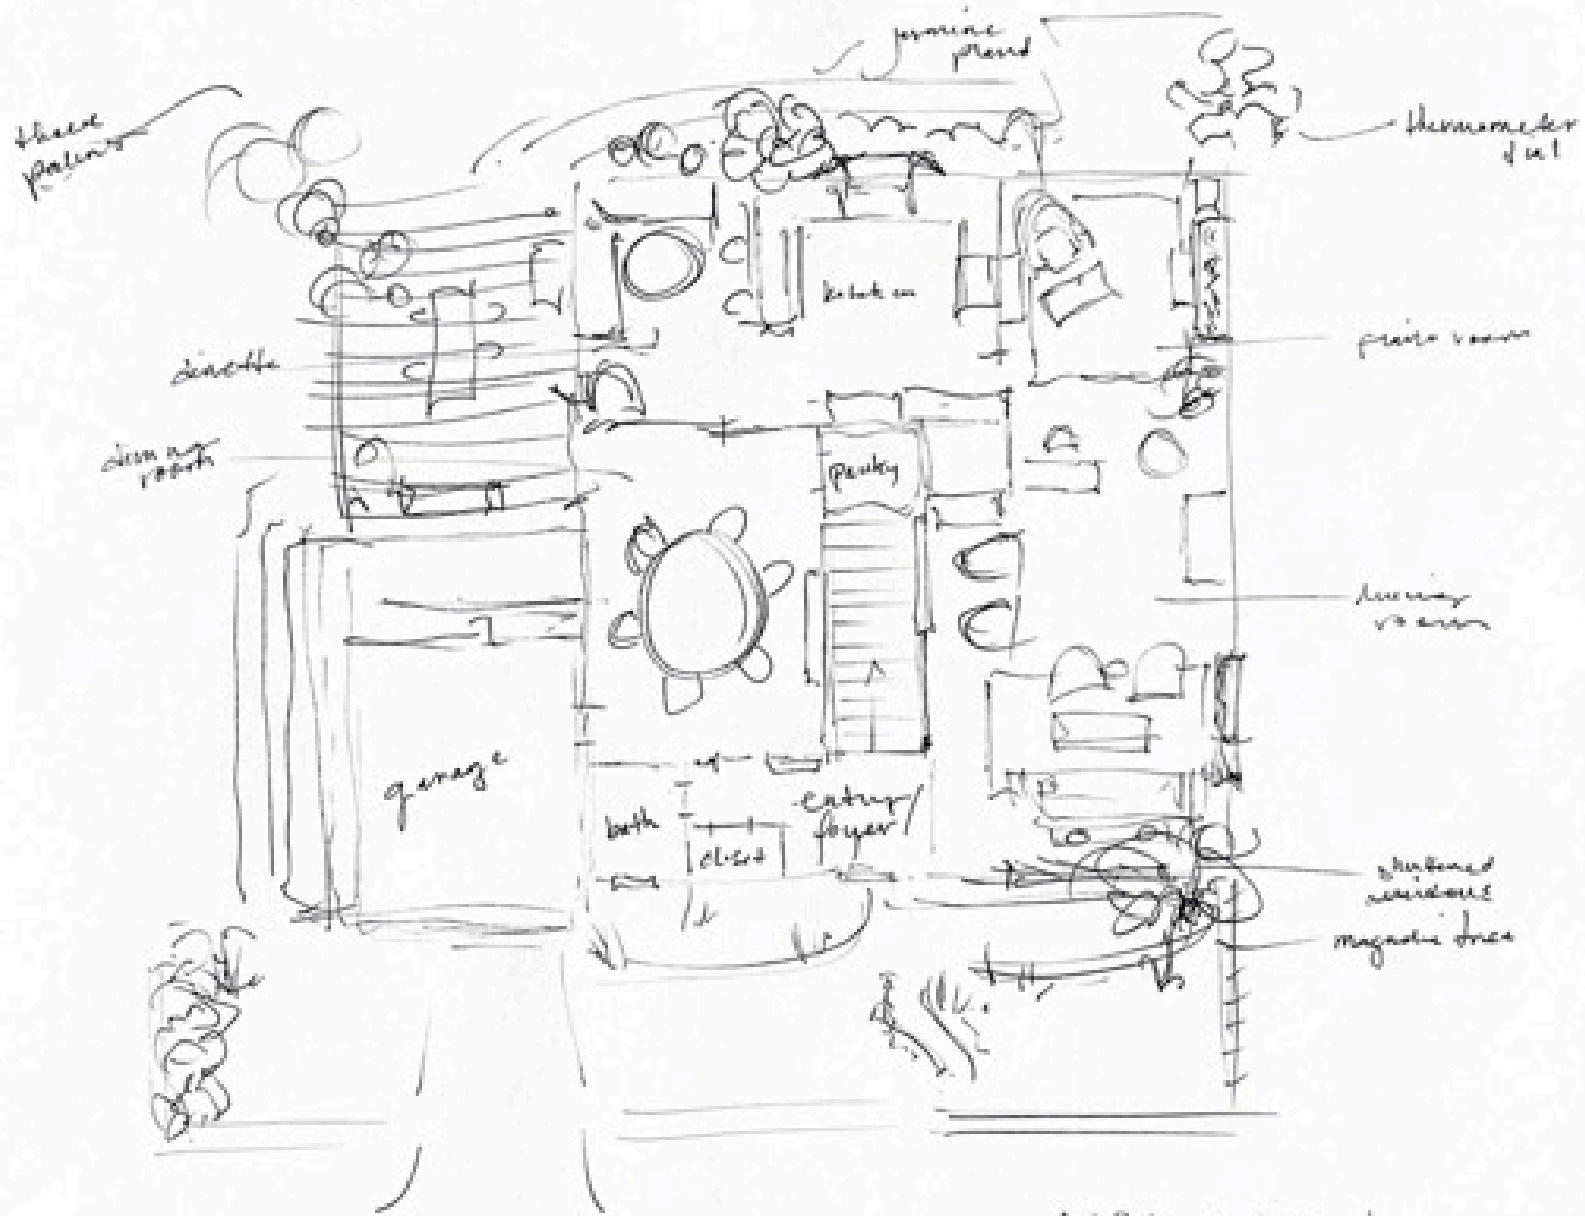 jasmine
three
palms
thermometer
kitchen
dinette
dining
room
pantry
living
room
garage
bath
closet
entry/
foyer
shuttered
windows
magnolia tree